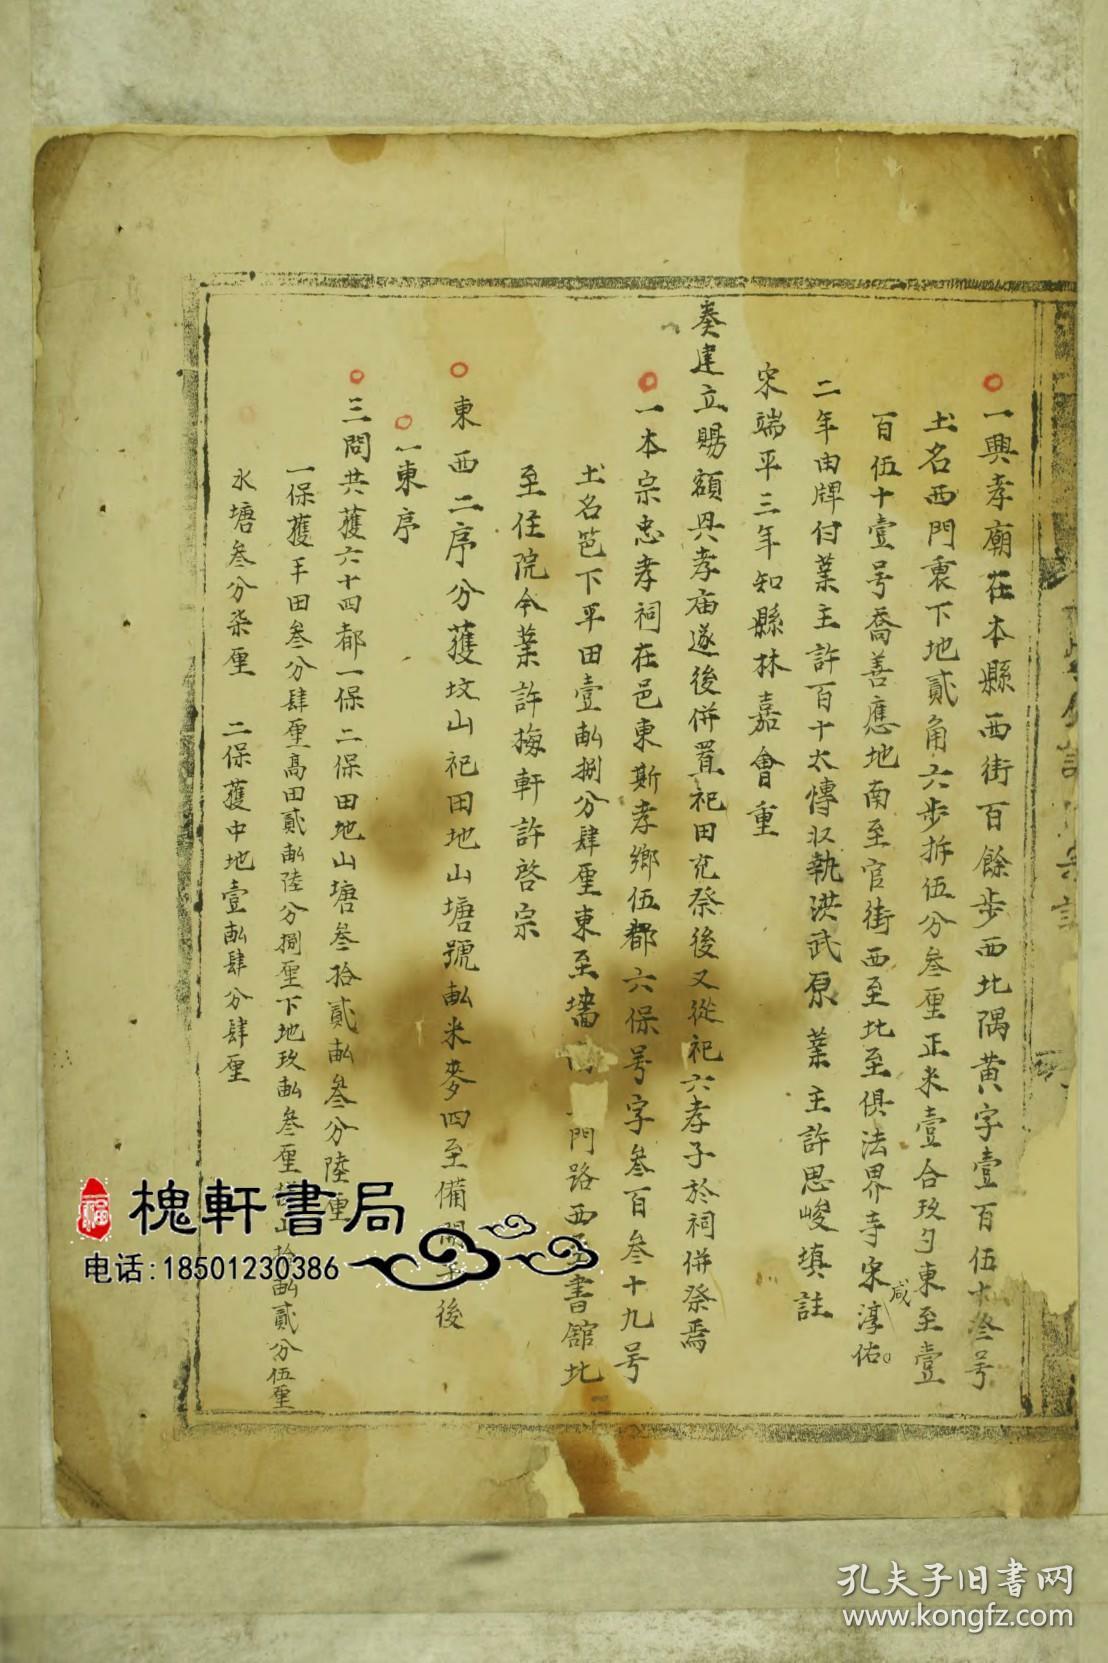 一興孝廟在本縣西街百餘步西北隅黄字壹百伍十叁号
土名西門裏下地貳角六步拆伍分叁厘正米壹合玖勺東至壹
百伍十壹号喬善應地南至官街西至北至俱法界寺宋淳佑
咸
二年由牌付業主許百十太慱収執洪武原業主許思峻填註
宋端平三年知縣林嘉會重
奏建立賜額興孝庙遂後併置祀田充祭後又從祀六孝子於祠併祭焉
一本宗忠孝祠在邑東斯孝鄉伍都六保号字叁百叁十九号
土名笆下平田壹畝捌分肆厘東至墻門路西至書館北
至住院今業許梅軒許啓宗
東西二序分獲坟山祀田地山塘號畝米麥四至備開于後
一東序
三問共獲六十四都一保二保田地山塘叁拾貳畝叁分陸厘
一保獲平田叁分肆厘高田貳畝陸分捌厘下地玖畝叁厘山拾畝貳分伍厘
水塘叁分柒厘 二保獲中地壹畝肆分肆厘
槐軒書局
福
电话:18501230386
孔夫子旧書网
www.kongfz.com